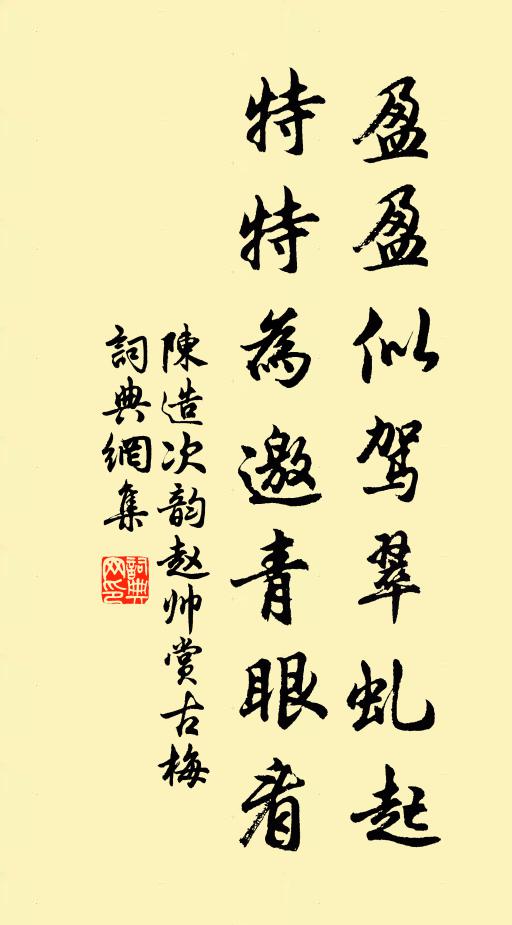 盈盈似驾翠虬起
特特為邀青眼看
陳造次韵赵帅赏古梅
詞典網集
詞典網印